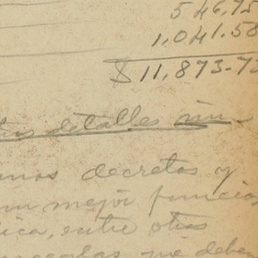 546.75
1,041.58
$ 11,873-73
detalles
decretos y
un mejor funcio
ica, entre otros
que deben